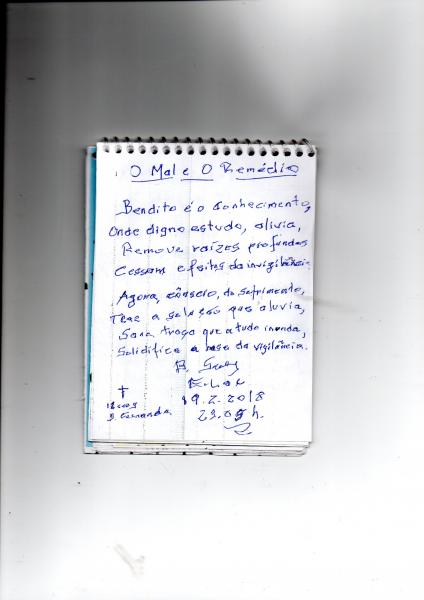 O Mal e O Remédio
Bendito é o conhecimento,
Onde digno estudo, alivia,
Remove raízes profundas
Cessam efeitos da invigilância.
Agora, cônscio, do sofrimento,
Tece a solução que aluvia,
Sana traça que a tudo inunda,
Solidifica a base da vigilância.
19.2.2018
23.05 h.